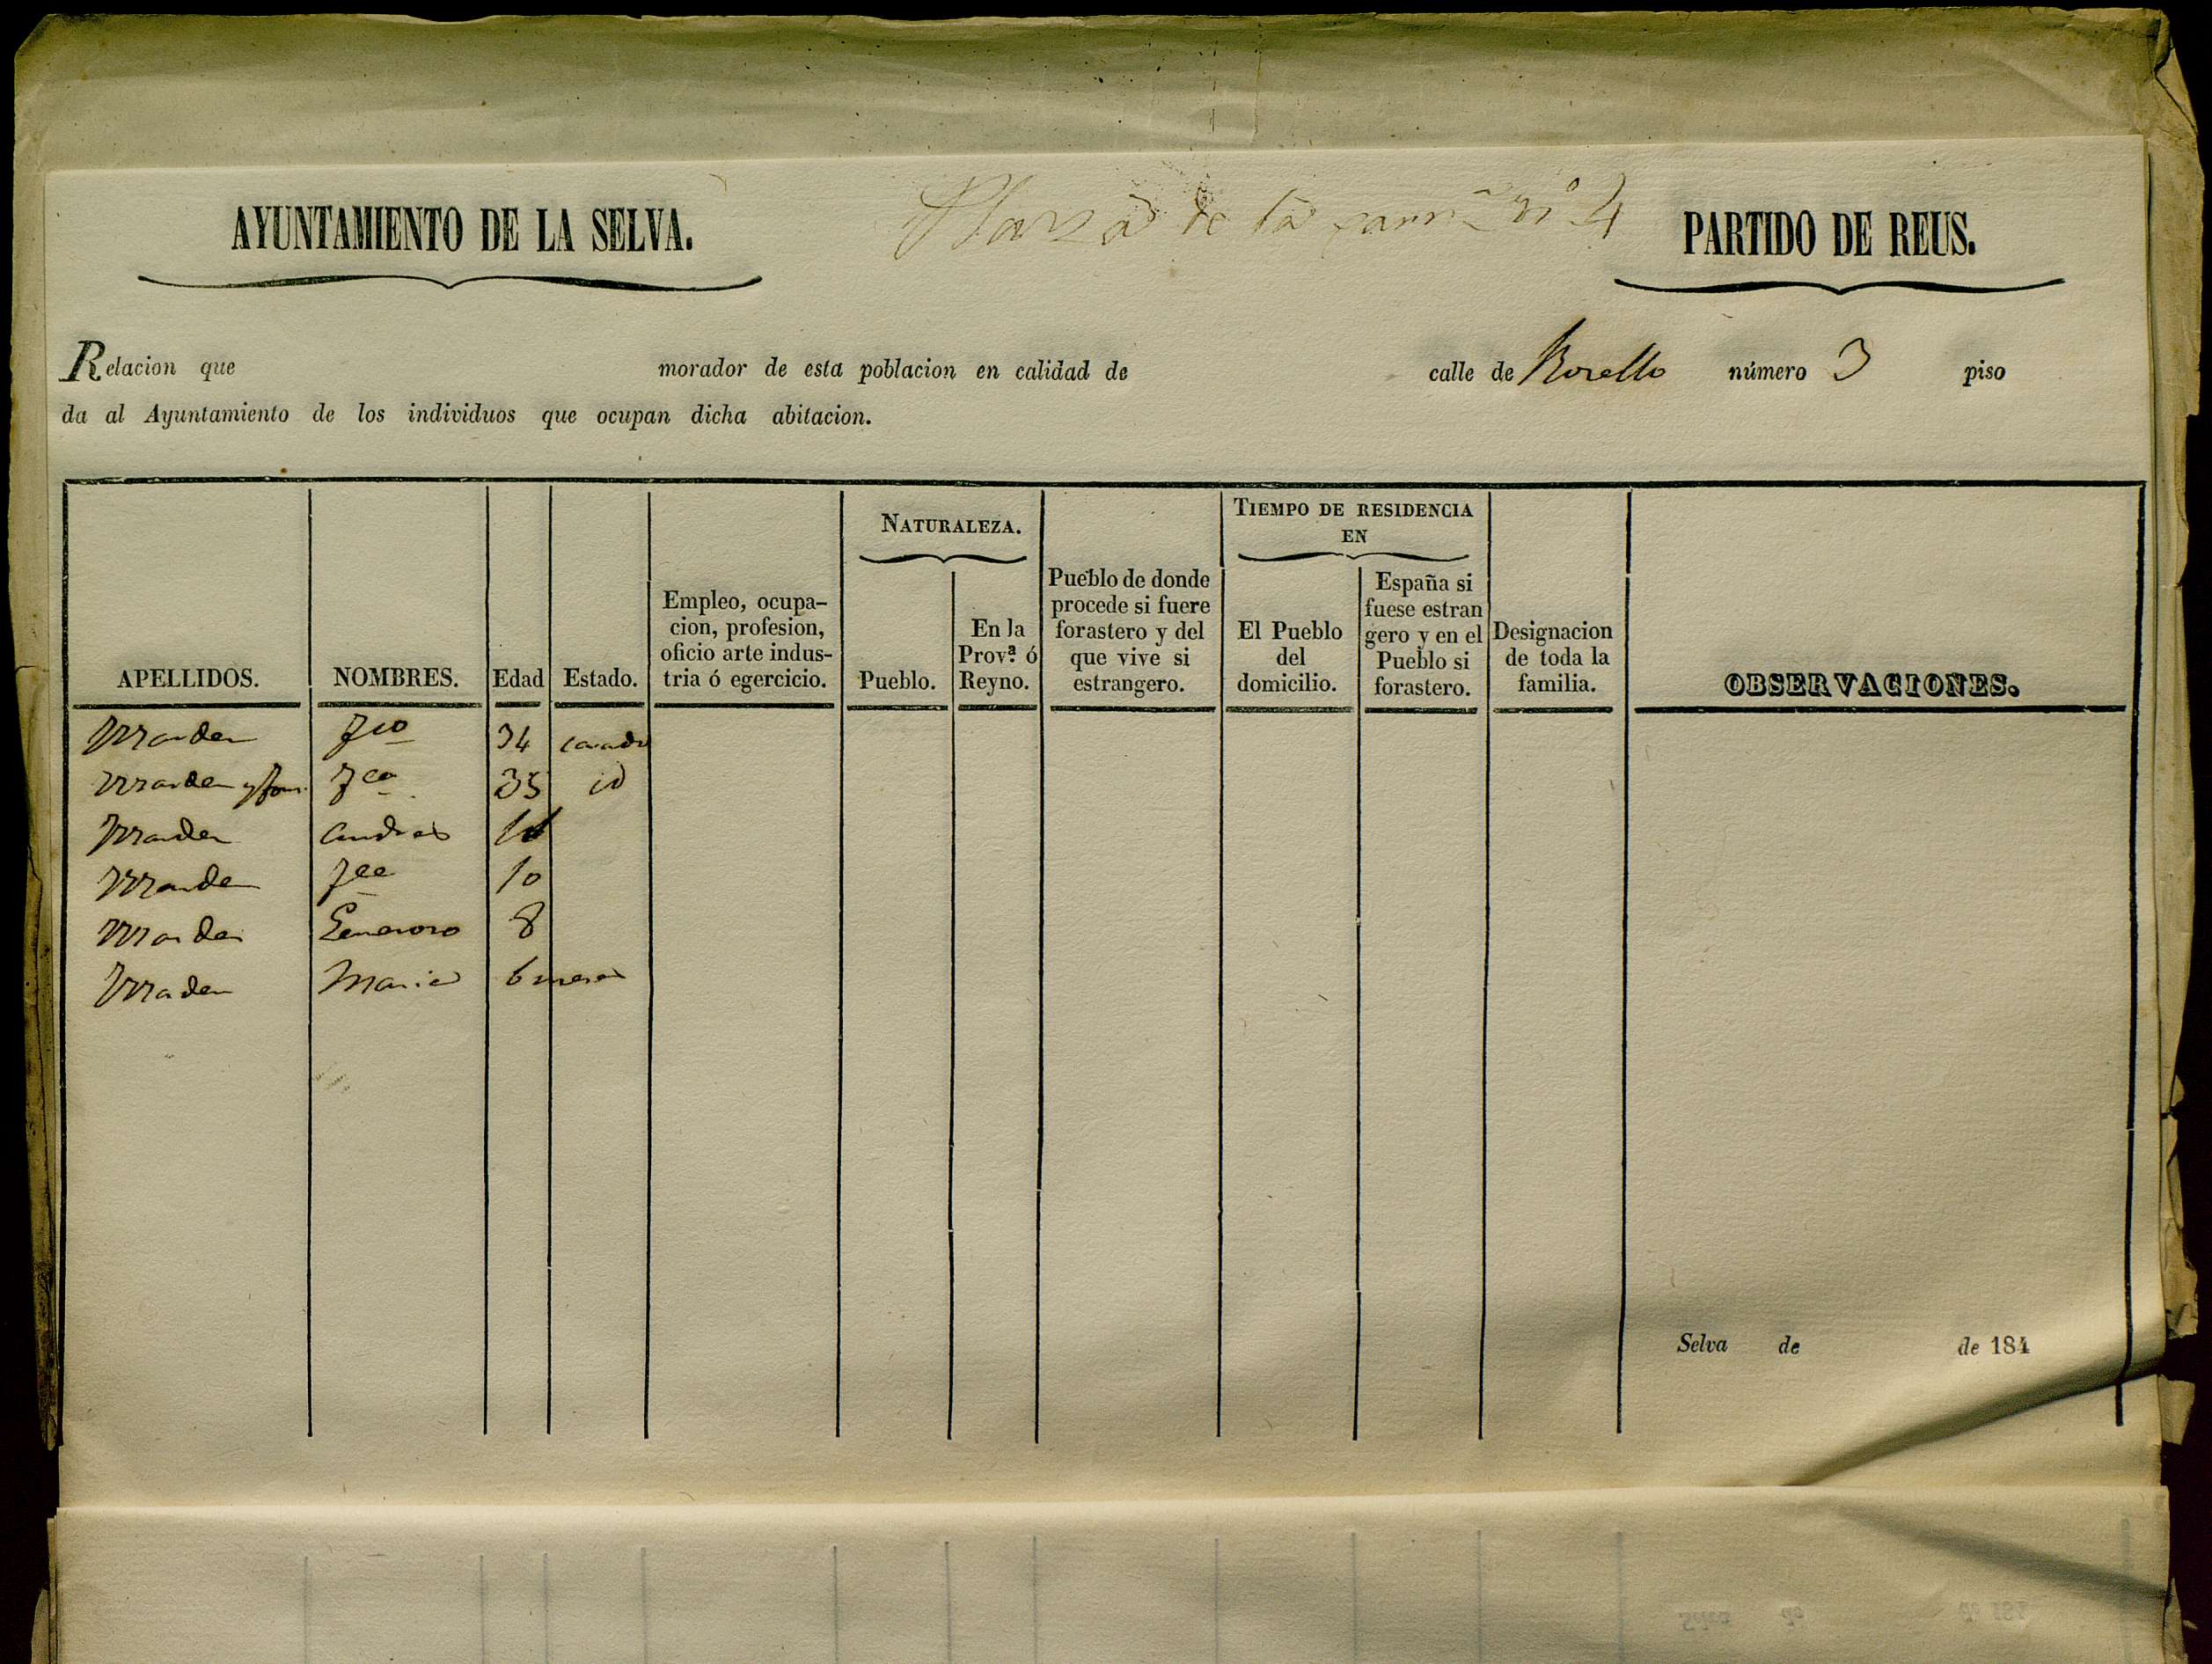 AYUNTAMIENTO DE LA SELVA.
Plaza de la carn nº 4
PARTIDO DE REUS.
Relacion que morador de esta poblacion en calidad de calle de Rosello número 3 piso
da al Ayuntamiento de los individuos que ocupan dicha abitacion.
APELLIDOS.
NOMBRES.
Edad
Estado.
Empleo, ocupa-
cion, profesion,
oficio arte indus-
tria ó egercicio.
NATURALEZA.
Pueblo.
En la
Prov.ª ó
Reyno.
Pueblo de donde
procede si fuere
forastero y del
que vive si
estrangero.
TIEMPO DE RESIDENCIA
EN
El Pueblo
del
domicilio.
España si
fuese estran
gero y en el
Pueblo si
forastero.
Designacion
de toda la
familia.
OBSERVACIONES.
Masden Fco 34 casado
Masden y Fca 35 id
Masden Andres
Masden Fca 10
Masden Generoso 8
Masden Maria 6 meses
Selva de de 184